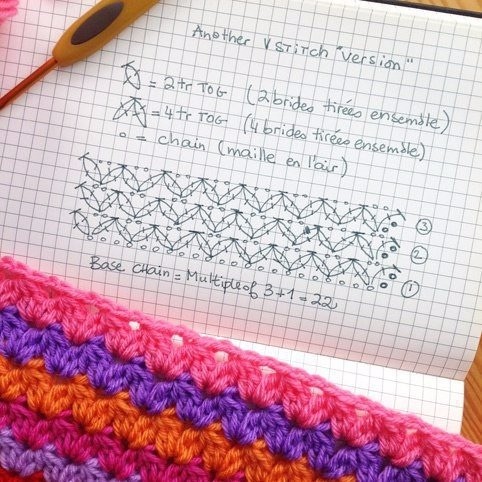 Another V Stitch "Version"
= 2 tr TOG (2 brides tirées ensemble)
= 4 tr TOG (4 brides tirées ensemble)
o = chain (maille en l'air)
3
2
1
Base chain = Multiple of 3 + 1 = 22